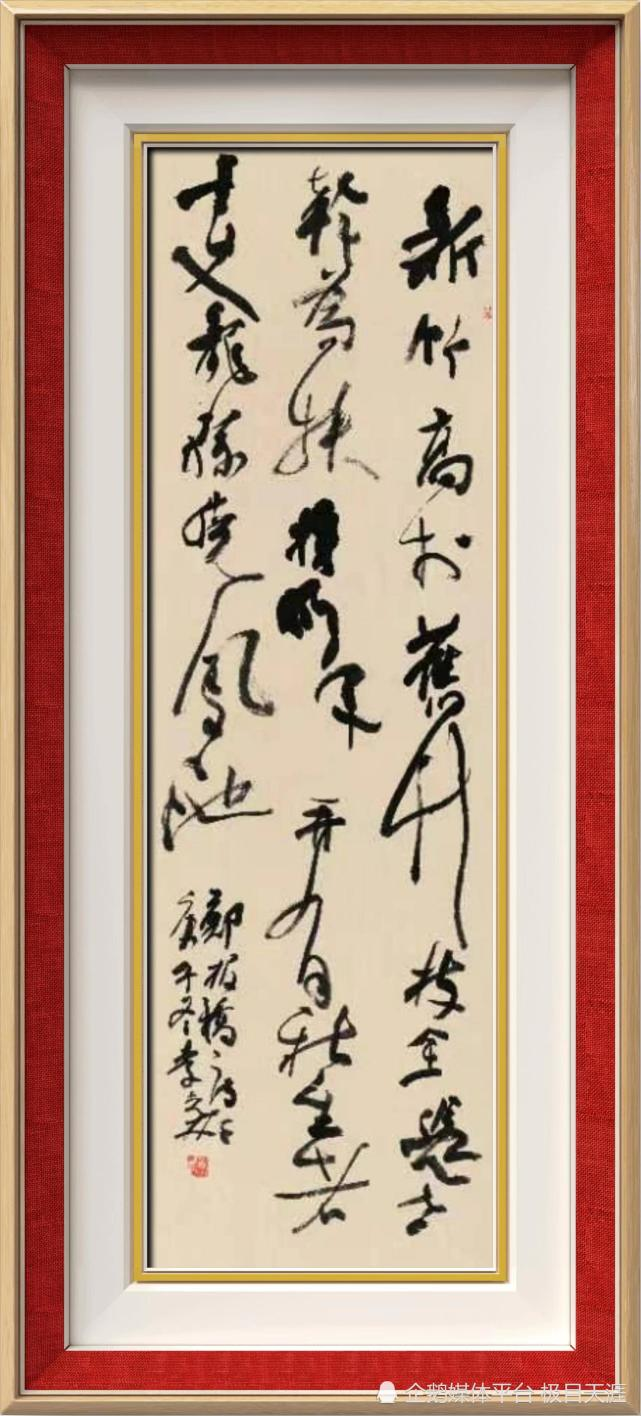 新竹高於舊竹枝全憑老
幹為扶持明年再有新生者
十丈龍孫繞鳳池
鄭板橋詩
庚午冬李
企鹅媒体平台 极目天涯